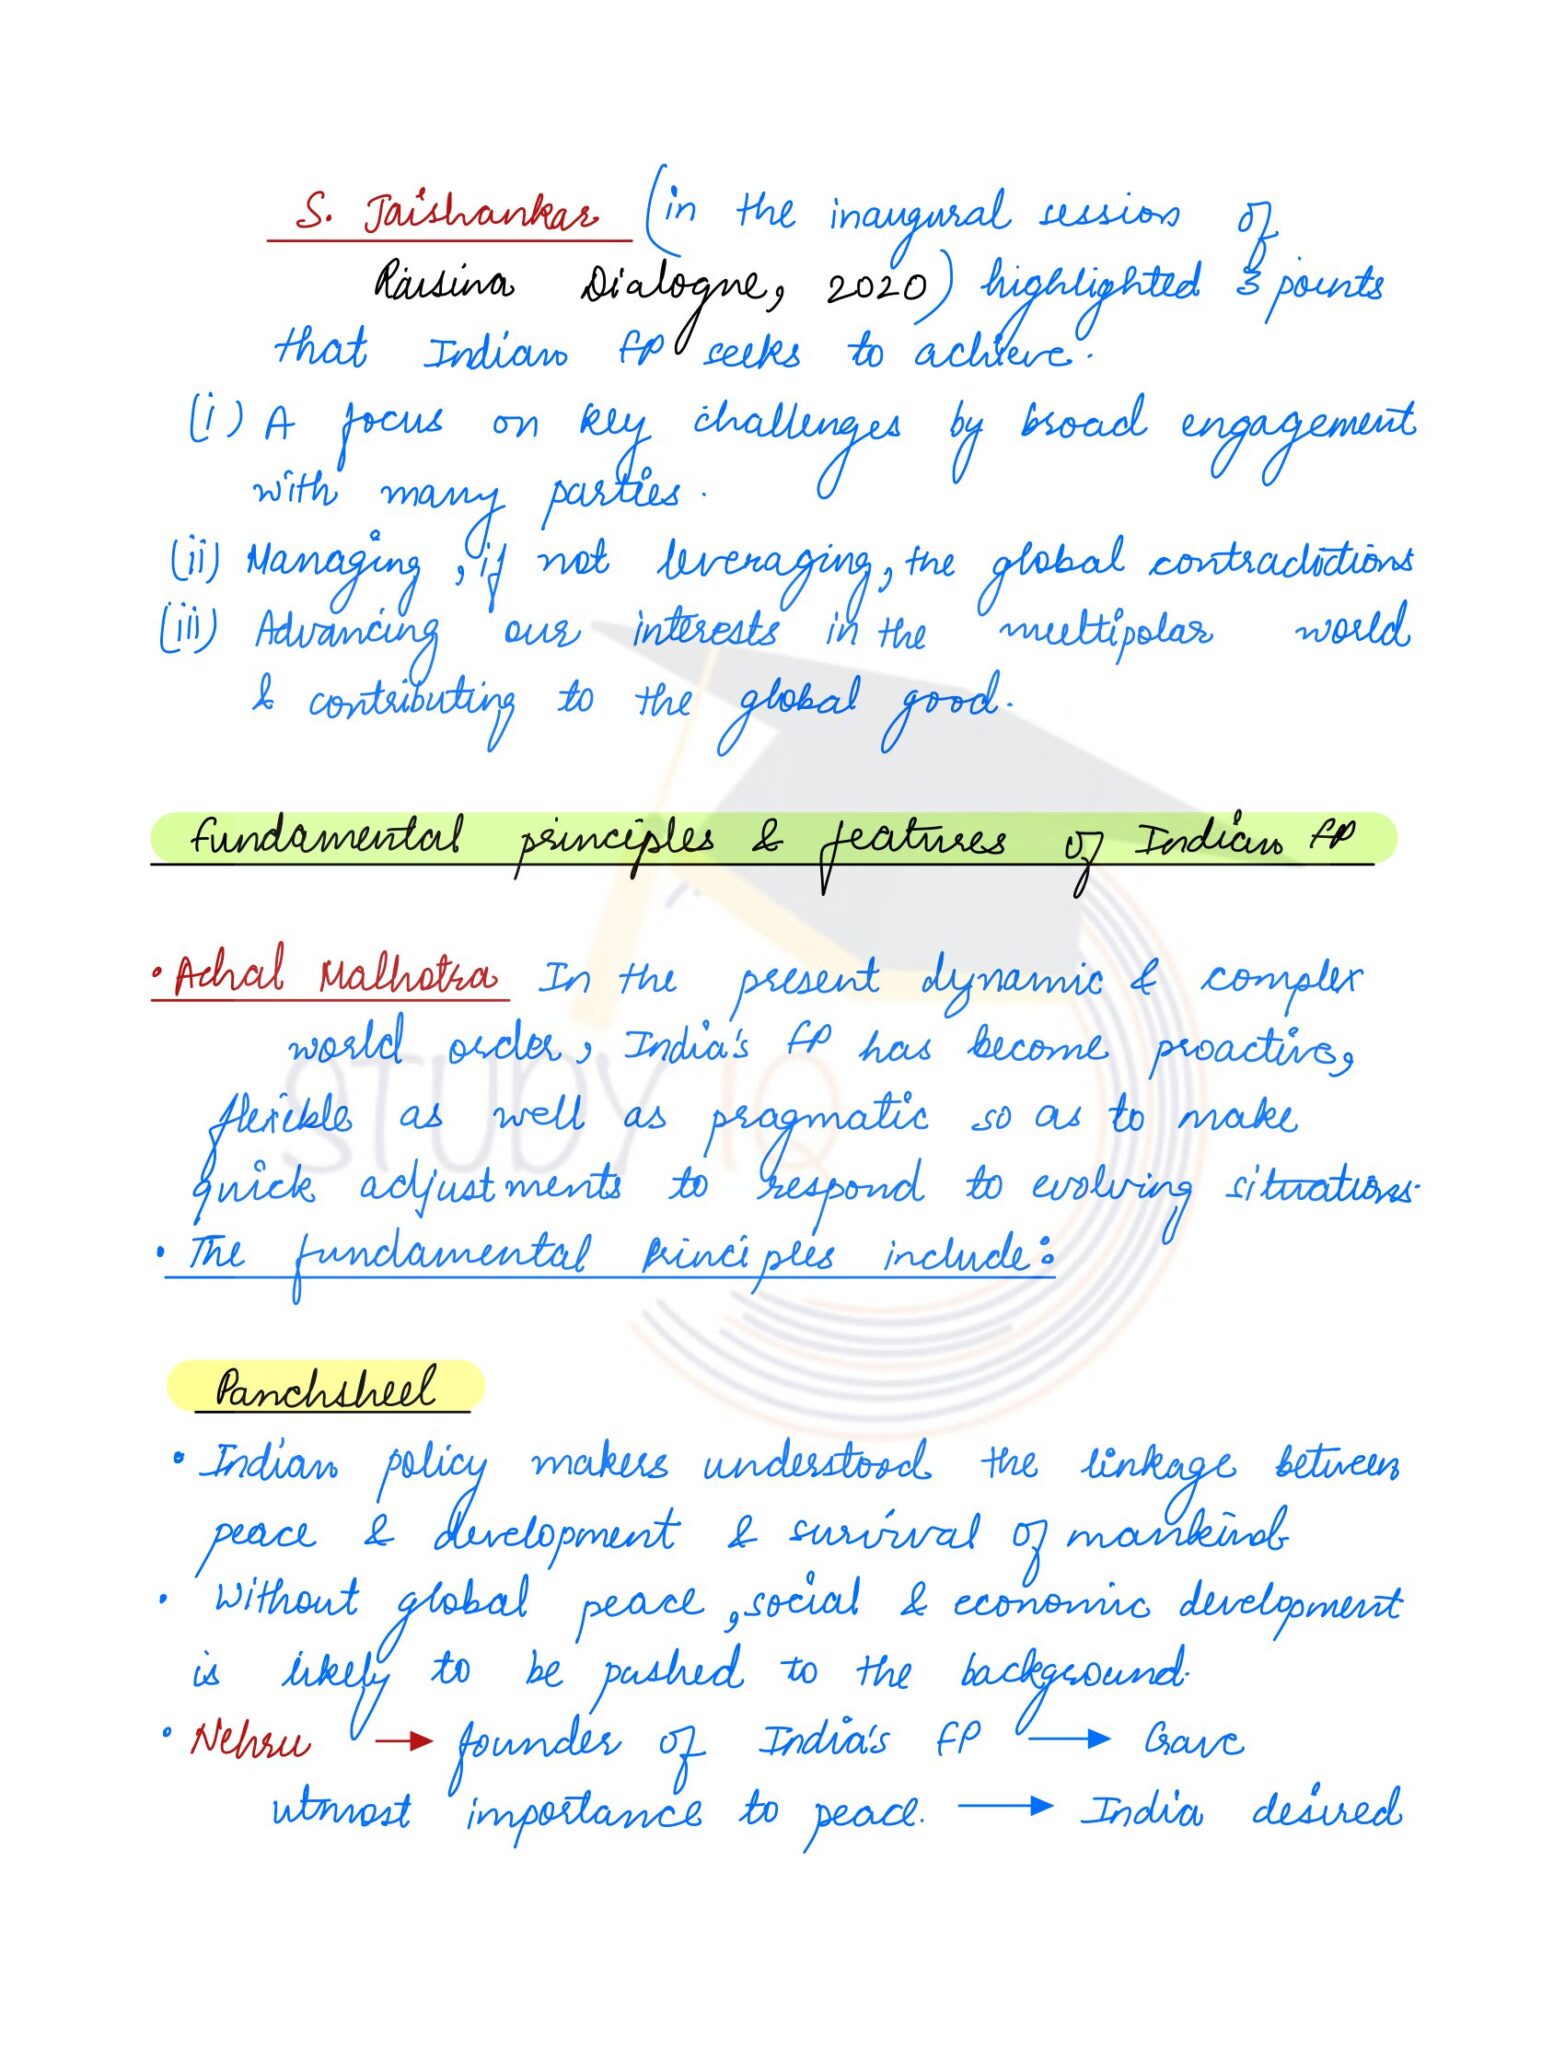 S. Jaishankar (in the inaugural session of
Raisina Dialogue, 2020) highlighted 3 points
that Indian FP seeks to achieve.
(i) A focus on key challenges by broad engagement
with many parties.
(ii) Managing, if not leveraging, the global contradictions
(iii) Advancing our interests in the multipolar world
& contributing to the global good.
Fundamental principles & features of Indian FP
• Achal Malhotra In the present dynamic & complex
world order, India's FP has become proactive,
flexible as well as pragmatic so as to make
quick adjustments to respond to evolving situations.
• The fundamental Principles include:
STUDY IQ
Panchsheel
• Indian policy makers understood the linkage between
peace & development & survival of mankind
• Without global peace, social & economic development
is likely to be pushed to the background.
• Nehru → founder of India's FP → Gave
utmost importance to peace. → India desired